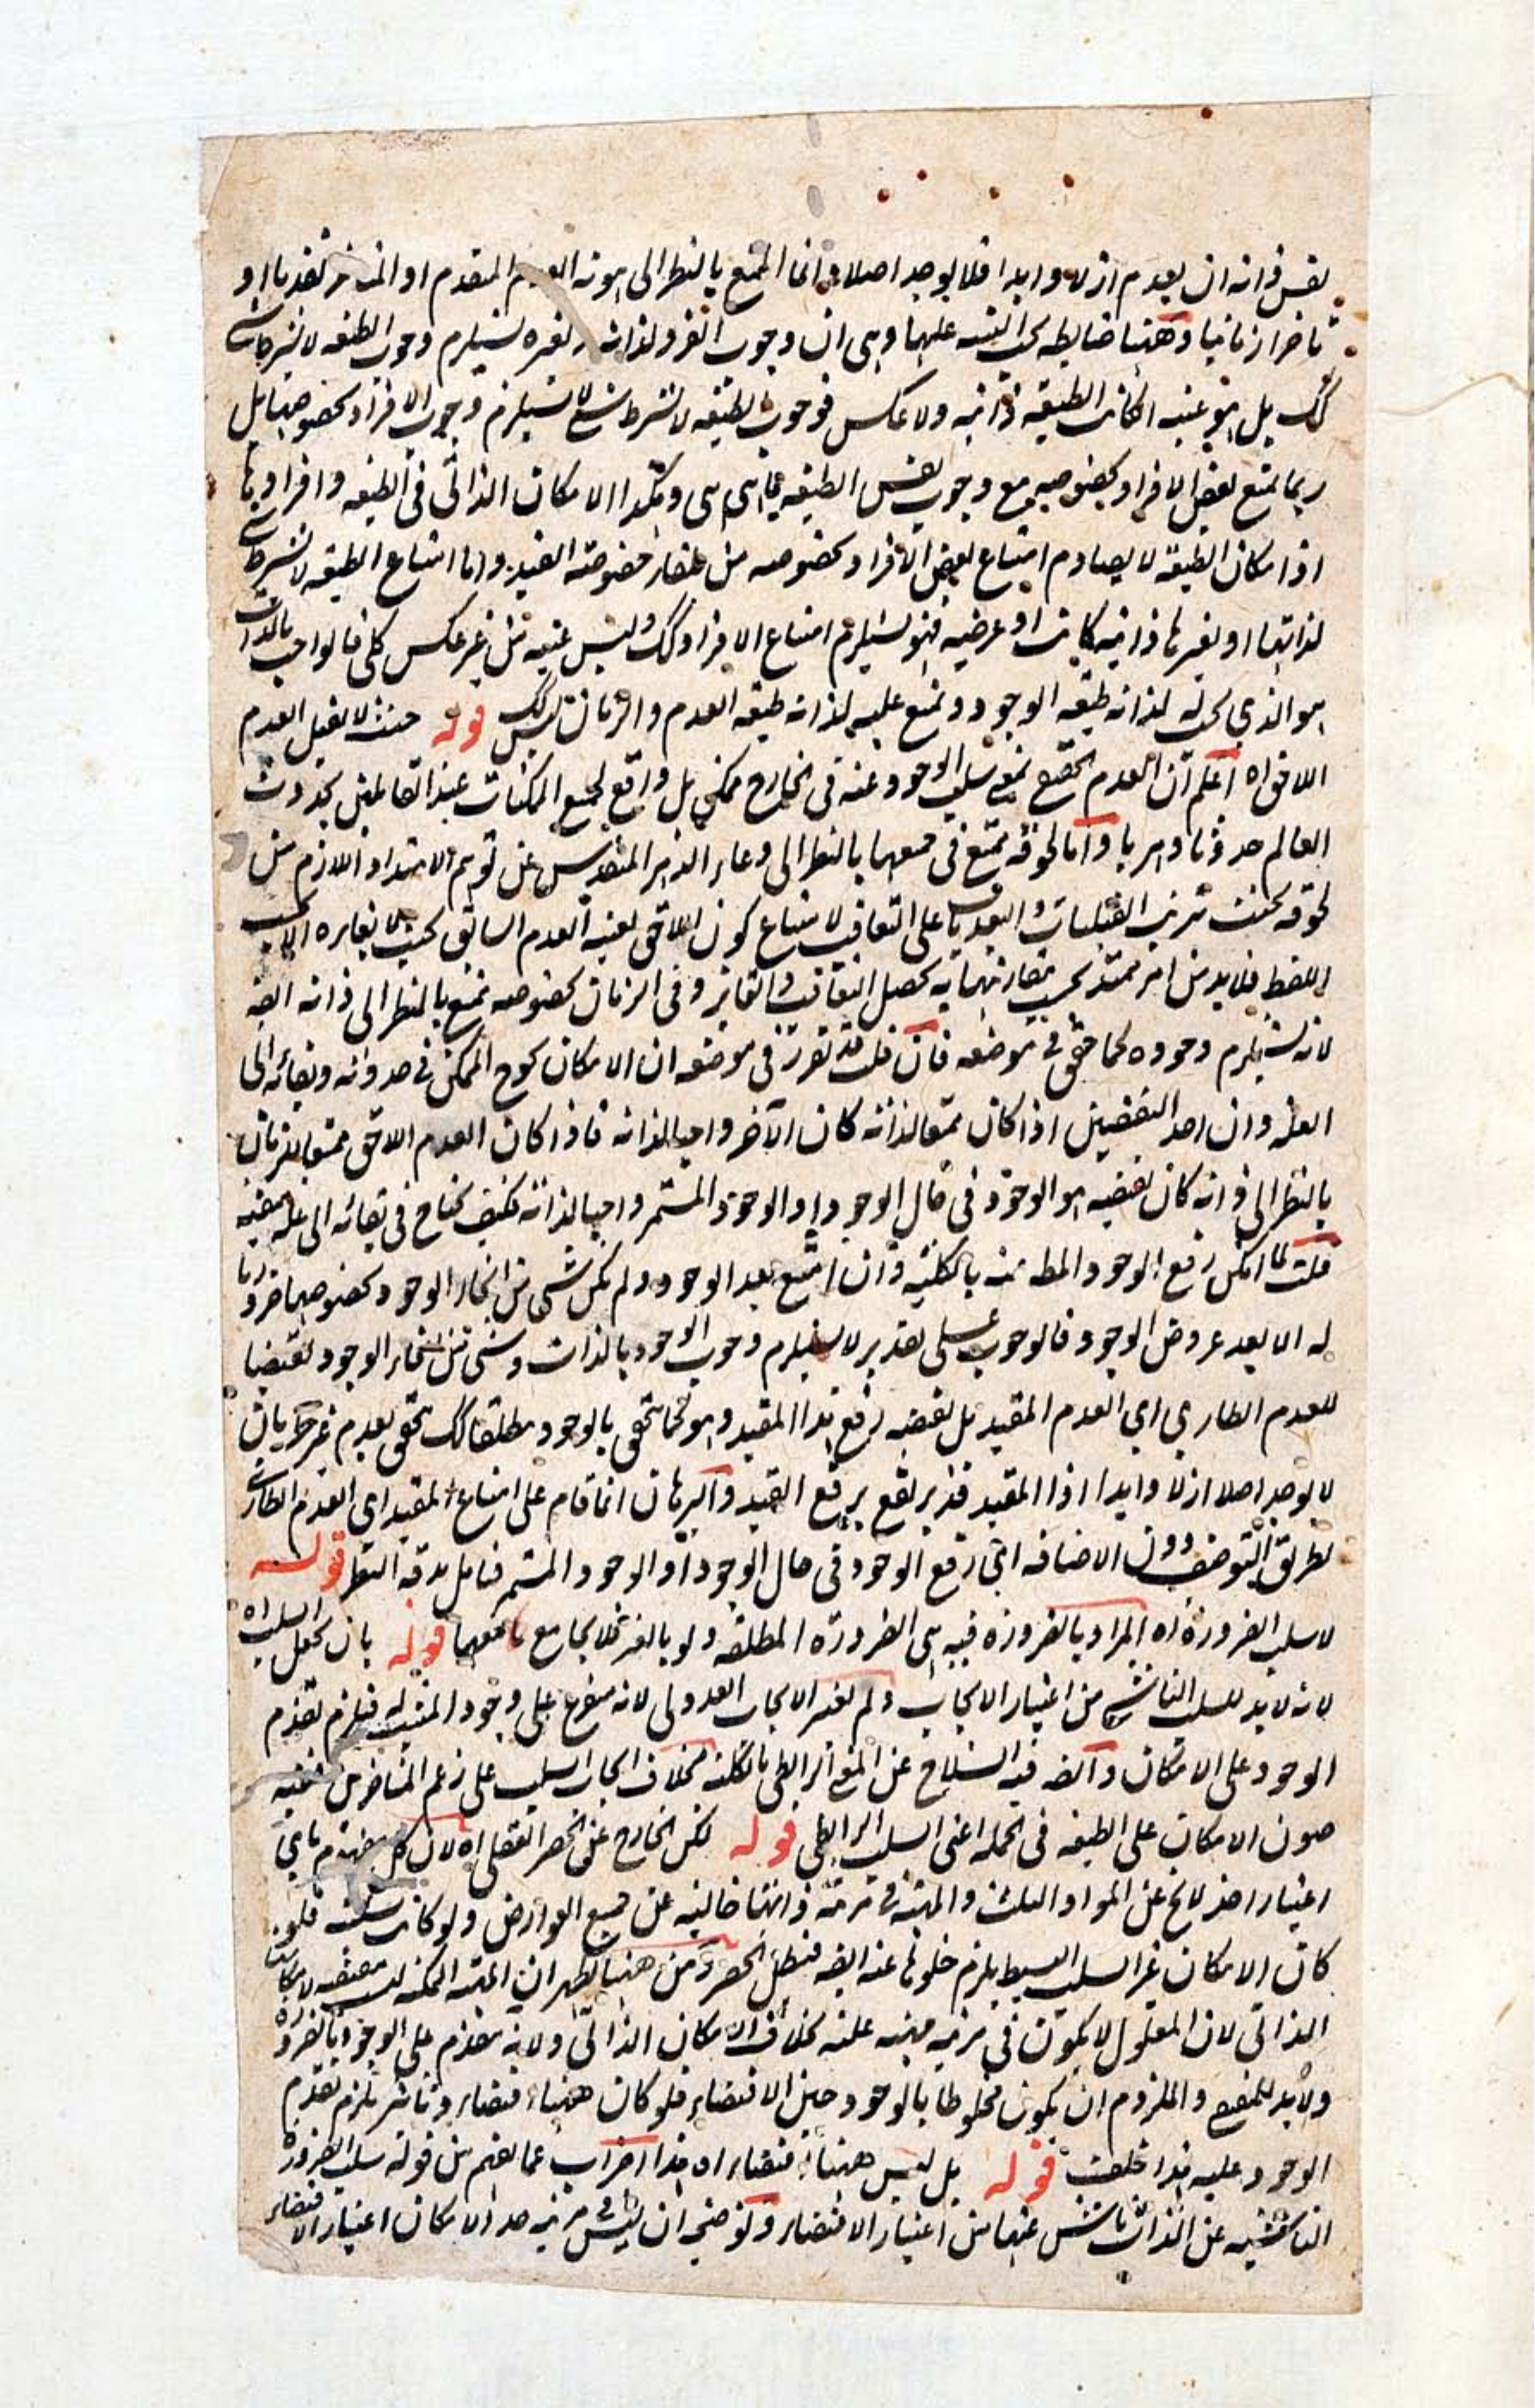 نفس ذاته ان يعدم ازلا وابدا فلا يوجد اصلا وانما الممتنع بالنظر الى هويته العدم المتقدم او المتاخر تقدما او
تاخرا زمانيا وههنا ضابطه يجب التنبيه عليها وهى ان وجوب الفرد لذاته او لغيره يستلزم وجوب الطبيعه لا بشرط شى
كك بل هو عينه اكانت الطبيعه ذاتيه ولا عكس فوجوب الطبيعه لا بشرط شئ لا يستلزم وجوب الافراد بخصوصها بل
ربما يمتنع بعض الافراد بخصوصه مع وجوب نفس الطبيعه بما هى هى وهكذا الامكان الذاتى فى الطبيعه وافرادها
اذ امكان الطبيعه لا يصادم امتناع بعض الافراد بخصوصه من تلقاء خصوصية القيد واما امتناع الطبيعه لا بشرط شى
لذاتها او لغيرها ذاتيه كانت او عرضيه فهو يستلزم امتناع الافراد كك وليس عينه من غير عكس كلى فالواجب بالذات
هو الذي يجب له لذاته طبيعه الوجود ويمتنع عليه لذاته طبيعه العدم والزمان ليس كك قوله حيث لا يقبل العدم
اللاحق اه اعلم ان العدم اللاحق بمعنى سلب الوجود عنه فى الخارج ممكن بل واقع لجميع الممكنات عند القائلين بحدوث
العالم حدوثا دهريا واما لحوقه فممتنع فى جميعها بالنظر الى وعاء الدهر المتقدس عن توهم الامتداد اللازم من
لحوقه بحيث ترتب القبليات والبعديات على التعاقب لامتناع كون اللاحق بعينه العدم السابق بحيث لا يغايره الا بحسب
اللفظ فلا بد من امر ممتد بحسب مقارنتهما به يحصل التعاقب والتغاير وفى الزمان بخصوصه ممتنع بالنظر الى ذاته ايضه
لانه يستلزم وجوده كما حقق فى موضعه فان قلت قد تقرر فى موضعه ان الامكان يحوج الممكن فى حدوثه وبقائه الى
العلة وان احد النقيضين اذا كان ممتنعا لذاته كان الآخر واجبا لذاته فاذا كان العدم اللاحق ممتنعا للزمان
بالنظر الى ذاته كان نقيضه هو الوجود فى حال الوجود او الوجود المستمر واجبا لذاته فكيف يحتاج فى بقائه الى علة مبقيه
قلت لما امكن رفع الوجود المطلق عنه بالكليه وان امتنع بعد الوجود ولم يكن شى من انحاء الوجود بخصوصها ضروريا
له الا بعد عروض الوجود فالوجوب على تقدير لا يستلزم وجوب الوجود بالذات وشى من انحاء الوجود نقيضا
للعدم الطاري اي العدم المقيد بل نقيضه رفع هذا المقيد وهو كما يتحقق بالوجود مطلقا كك يتحقق بعدم غير طار بان
لا يوجد اصلا ازلا وابدا اذ المقيد قد يرتفع برفع القيد والبرهان انما قام على امتناع المقيد اي العدم الطاري
بطريق التوصيف دون الاضافه اي رفع الوجود فى حال الوجود او الوجود المستمر فتامل بدقة النظر قوله
لا سلب الضرورة اه المراد بالضروره فيه هى الضروره المطلقه ولو بالغير فلا يجامع معها قوله بان يجعل السلب اه
لانه لا بد للسلب الناشى من اعتبار الايجاب ولم يعتبر الايجاب العدولى لانه متفرع على وجود المثبت له فيلزم تقدم
الوجود على الامكان وايضه فيه انسلاخ عن المعنى الرابطى بالكليه بخلاف ايجاب السلب على زعم المتاخرين ففيه
صون الامكان على الطبيعه فى الجمله اعنى السلب الرابطى قوله لكن الخارج عن الحصر العقلى اه لان كل مفهوم باي
اعتبار اخذ لا يخ عن المواد الثلث والمهيه فى مرتبة ذاتها خاليه عن جميع العوارض ولو كانت سلبيه فلو
كان الامكان غير السلب البسيط يلزم خلوها عنه ايضه فبطل الحصر ومن ههنا يظهر ان المهيه الممكنه ليست مقتضيه لامكانها
الذاتى لان المعلول لا يكون فى مرتبه مهيه علته بخلاف الامكان الذاتى ولانه متقدم على الوجود بالضروره
ولا بد للمقتضى والملزوم ان يكون مخلوطا بالوجود حين الاقتضاء فلو كان ههنا اقتضاء وتاثير يلزم تقدم
الوجود عليه هذا خلف قوله بل ليس ههنا اقتضاء اه هذا اضراب عما يفهم من قوله سلب الضرورة
الناشئيه عن الذات ناش عنها من اعتبار الاقتضاء وتوضيحه ان ليس فى مرتبه حد الامكان اعتبار الاقتضاء